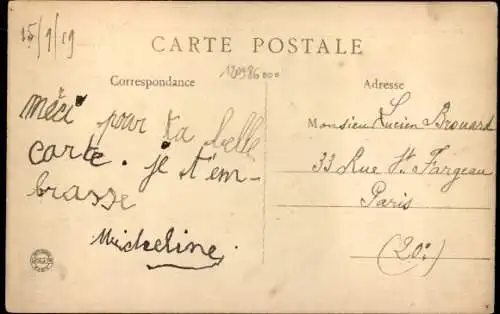 15/9/19
CARTE POSTALE
120986000
Correspondance
Adresse
méci pour ta belle
carte. je t'em-
brasse
Micheline
Monsieur Lucien Brouard
33 Rue St. Fargeau
Paris
(20e)